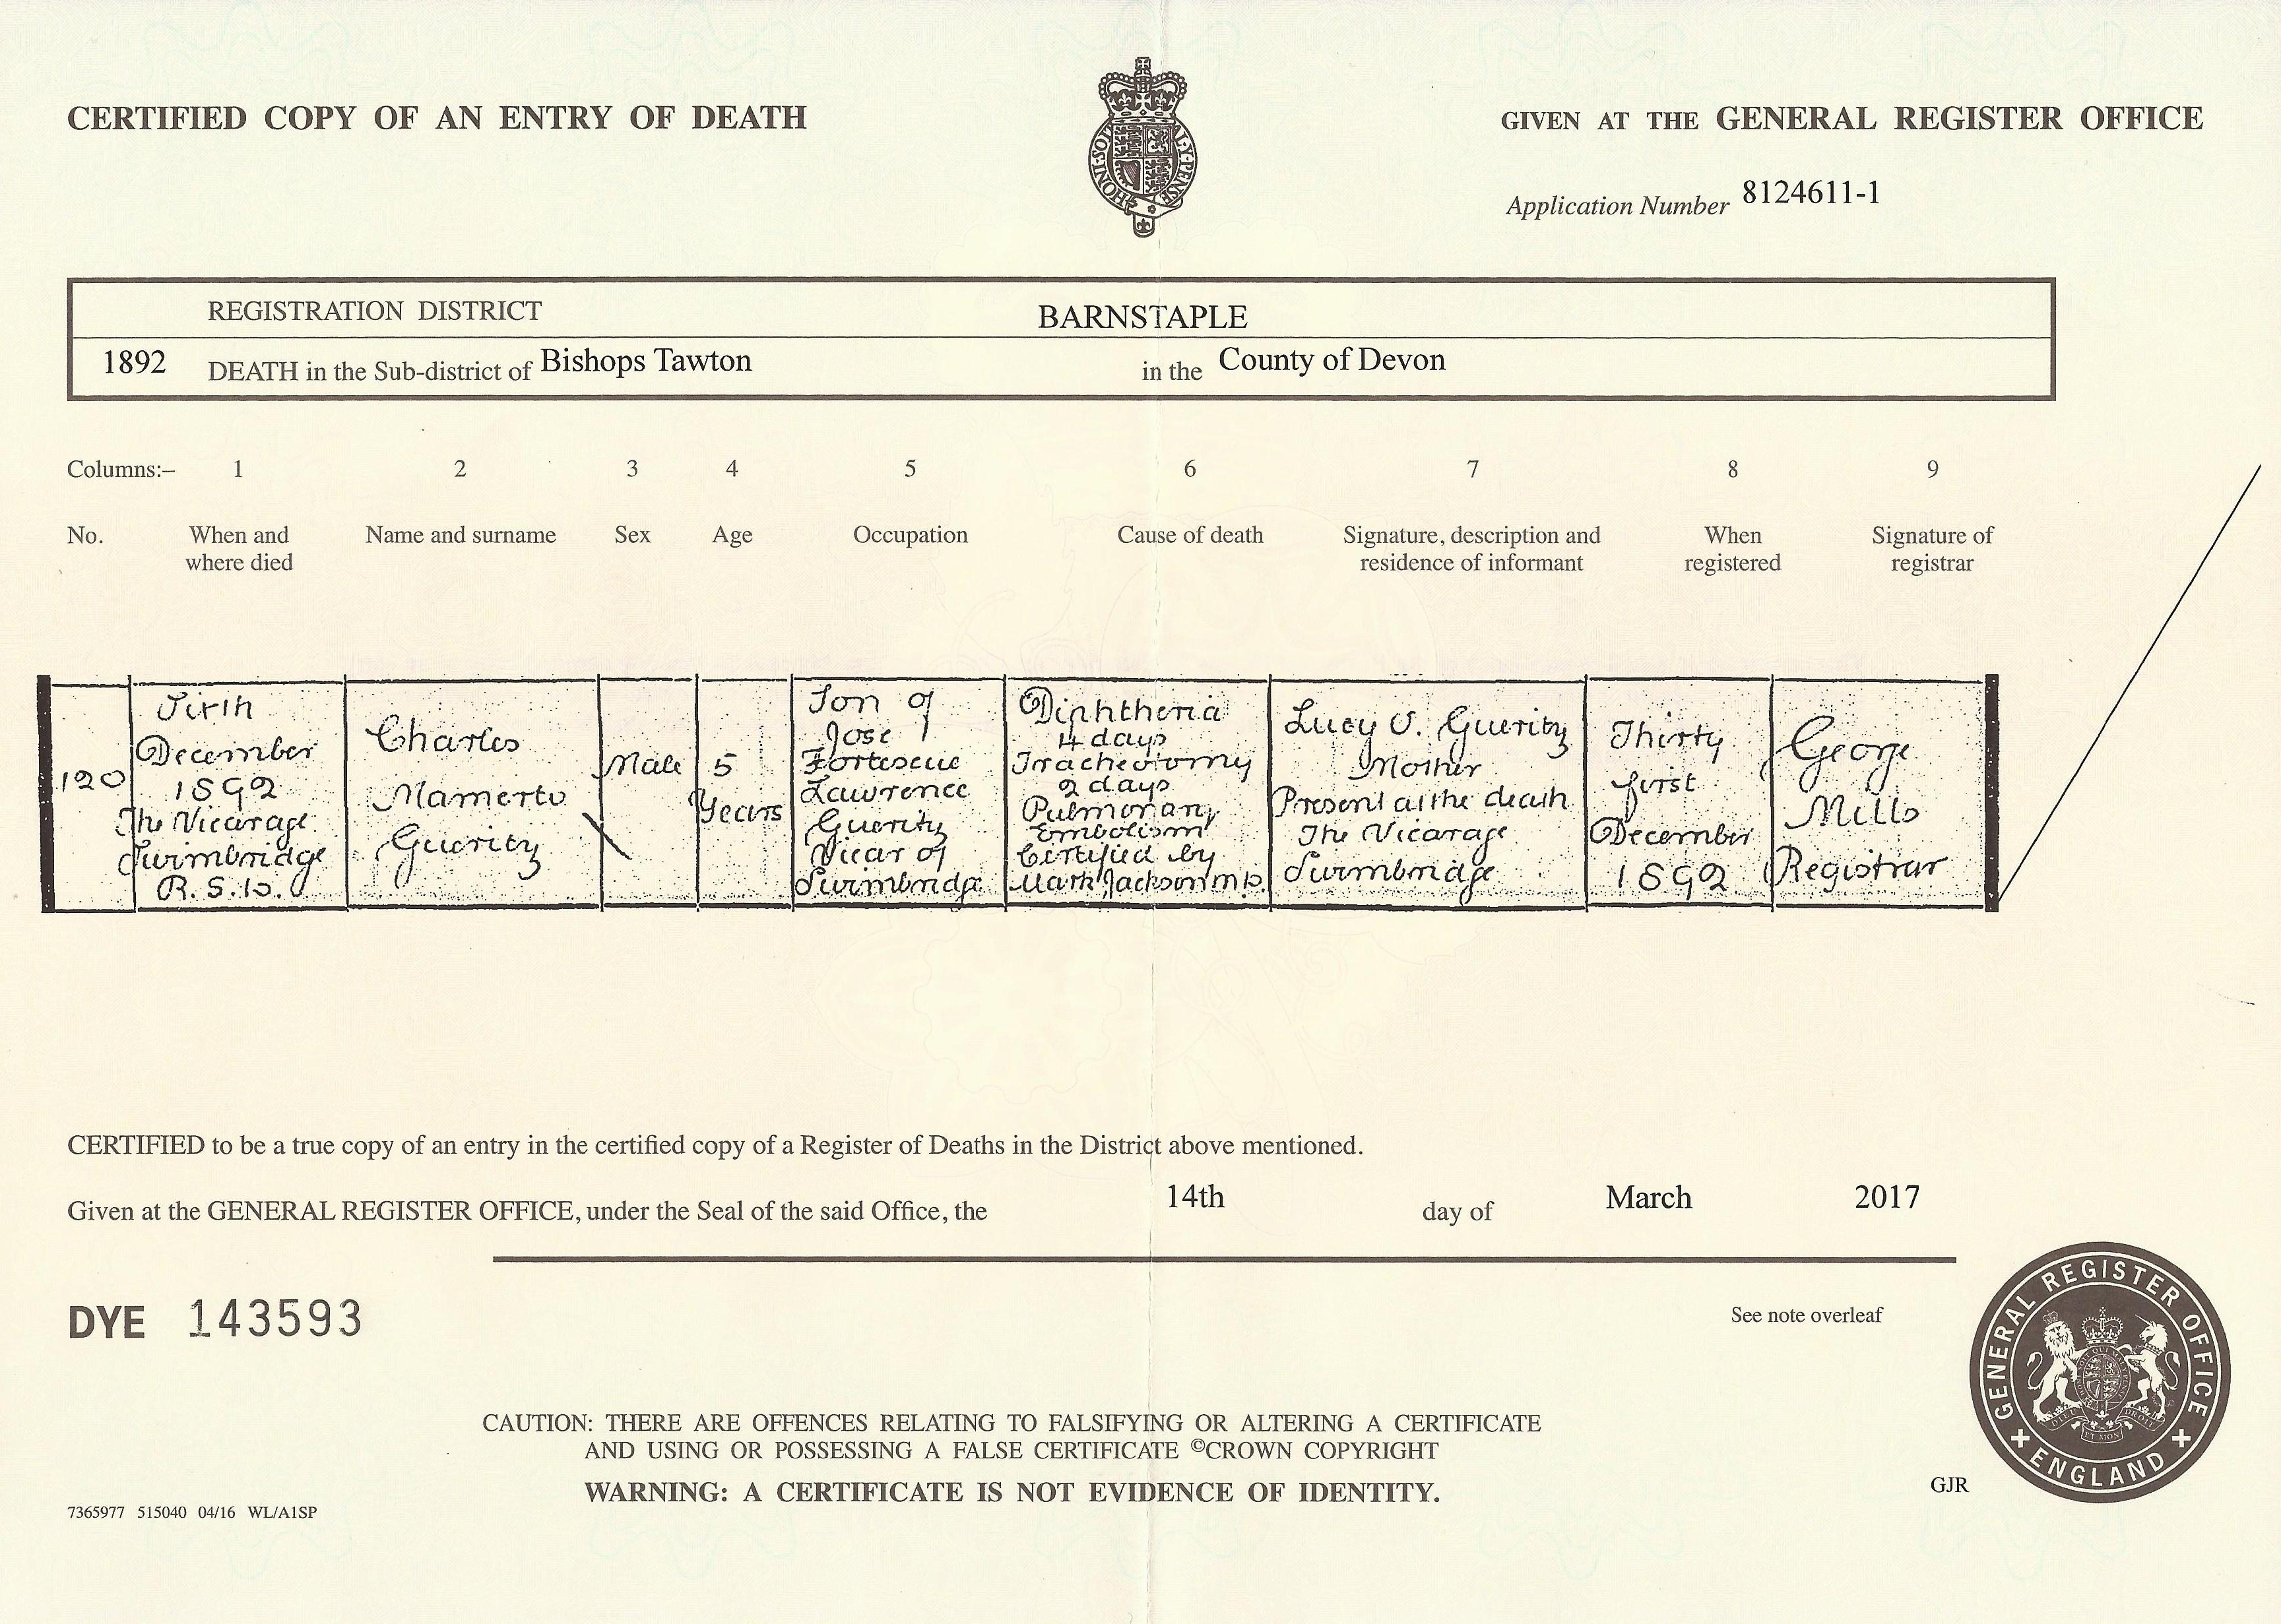 CERTIFIED COPY OF AN ENTRY OF DEATH
GIVEN AT THE GENERAL REGISTER OFFICE
HONI·SOI
AL·Y·PENSE
Application Number 8124611-1
REGISTRATION DISTRICT BARNSTAPLE
1892 DEATH in the Sub-district of Bishops Tawton in the County of Devon
Columns:– 1 2 3 4 5 6 7 8 9
No. When and where died Name and surname Sex Age Occupation Cause of death Signature, description and residence of informant When registered Signature of registrar
120
Sixth
December
1892
The Vicarage
Swimbridge
R.S.D.
Charles
Mamerto
Guerity
Male
5
Years
Son of
Jose
Fortescue
Lawrence
Guerity
Vicar of
Swimbridge
Diphtheria
4 days
Tracheotomy
2 days
Pulmonary
Embolism
Certified by
Mark Jackson M.D.
Lucy O. Guerity
Mother
Present at the death
The Vicarage
Swimbridge
Thirty
first
December
1892
George
Mills
Registrar
CERTIFIED to be a true copy of an entry in the certified copy of a Register of Deaths in the District above mentioned.
Given at the GENERAL REGISTER OFFICE, under the Seal of the said Office, the 14th day of March 2017
DYE 143593
See note overleaf
GENERAL REGISTER OFFICE
ENGLAND
DIEU ET MON DROIT
CAUTION: THERE ARE OFFENCES RELATING TO FALSIFYING OR ALTERING A CERTIFICATE
AND USING OR POSSESSING A FALSE CERTIFICATE ©CROWN COPYRIGHT
WARNING: A CERTIFICATE IS NOT EVIDENCE OF IDENTITY.
GJR
7365977 515040 04/16 WL/A1SP